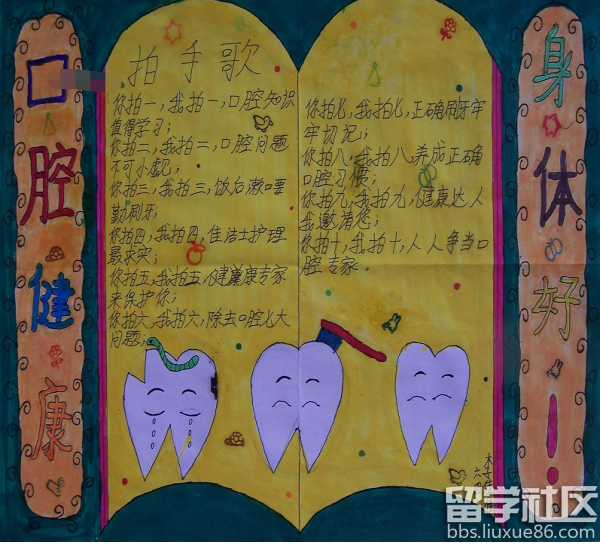 口腔健康
拍手歌
你拍一,我拍一,口腔知识
值得学习;
你拍二,我拍二,口腔问题
不可小视;
你拍三,我拍三,饭后漱口要
勤刷牙;
你拍四,我拍四,佳洁士护理
最来实;
你拍五,我拍五,健康专家
来保护你;
你拍六,我拍六,除去口腔七大
问题;
你拍七,我拍七,正确刷牙牢
牢切记;
你拍八,我拍八养成正确
口腔习惯;
你拍九,我拍九,健康达人
我邀请您;
你拍十,我拍十,人人争当口
腔专家.
身体好!
留学社区
bbs.liuxue86.com